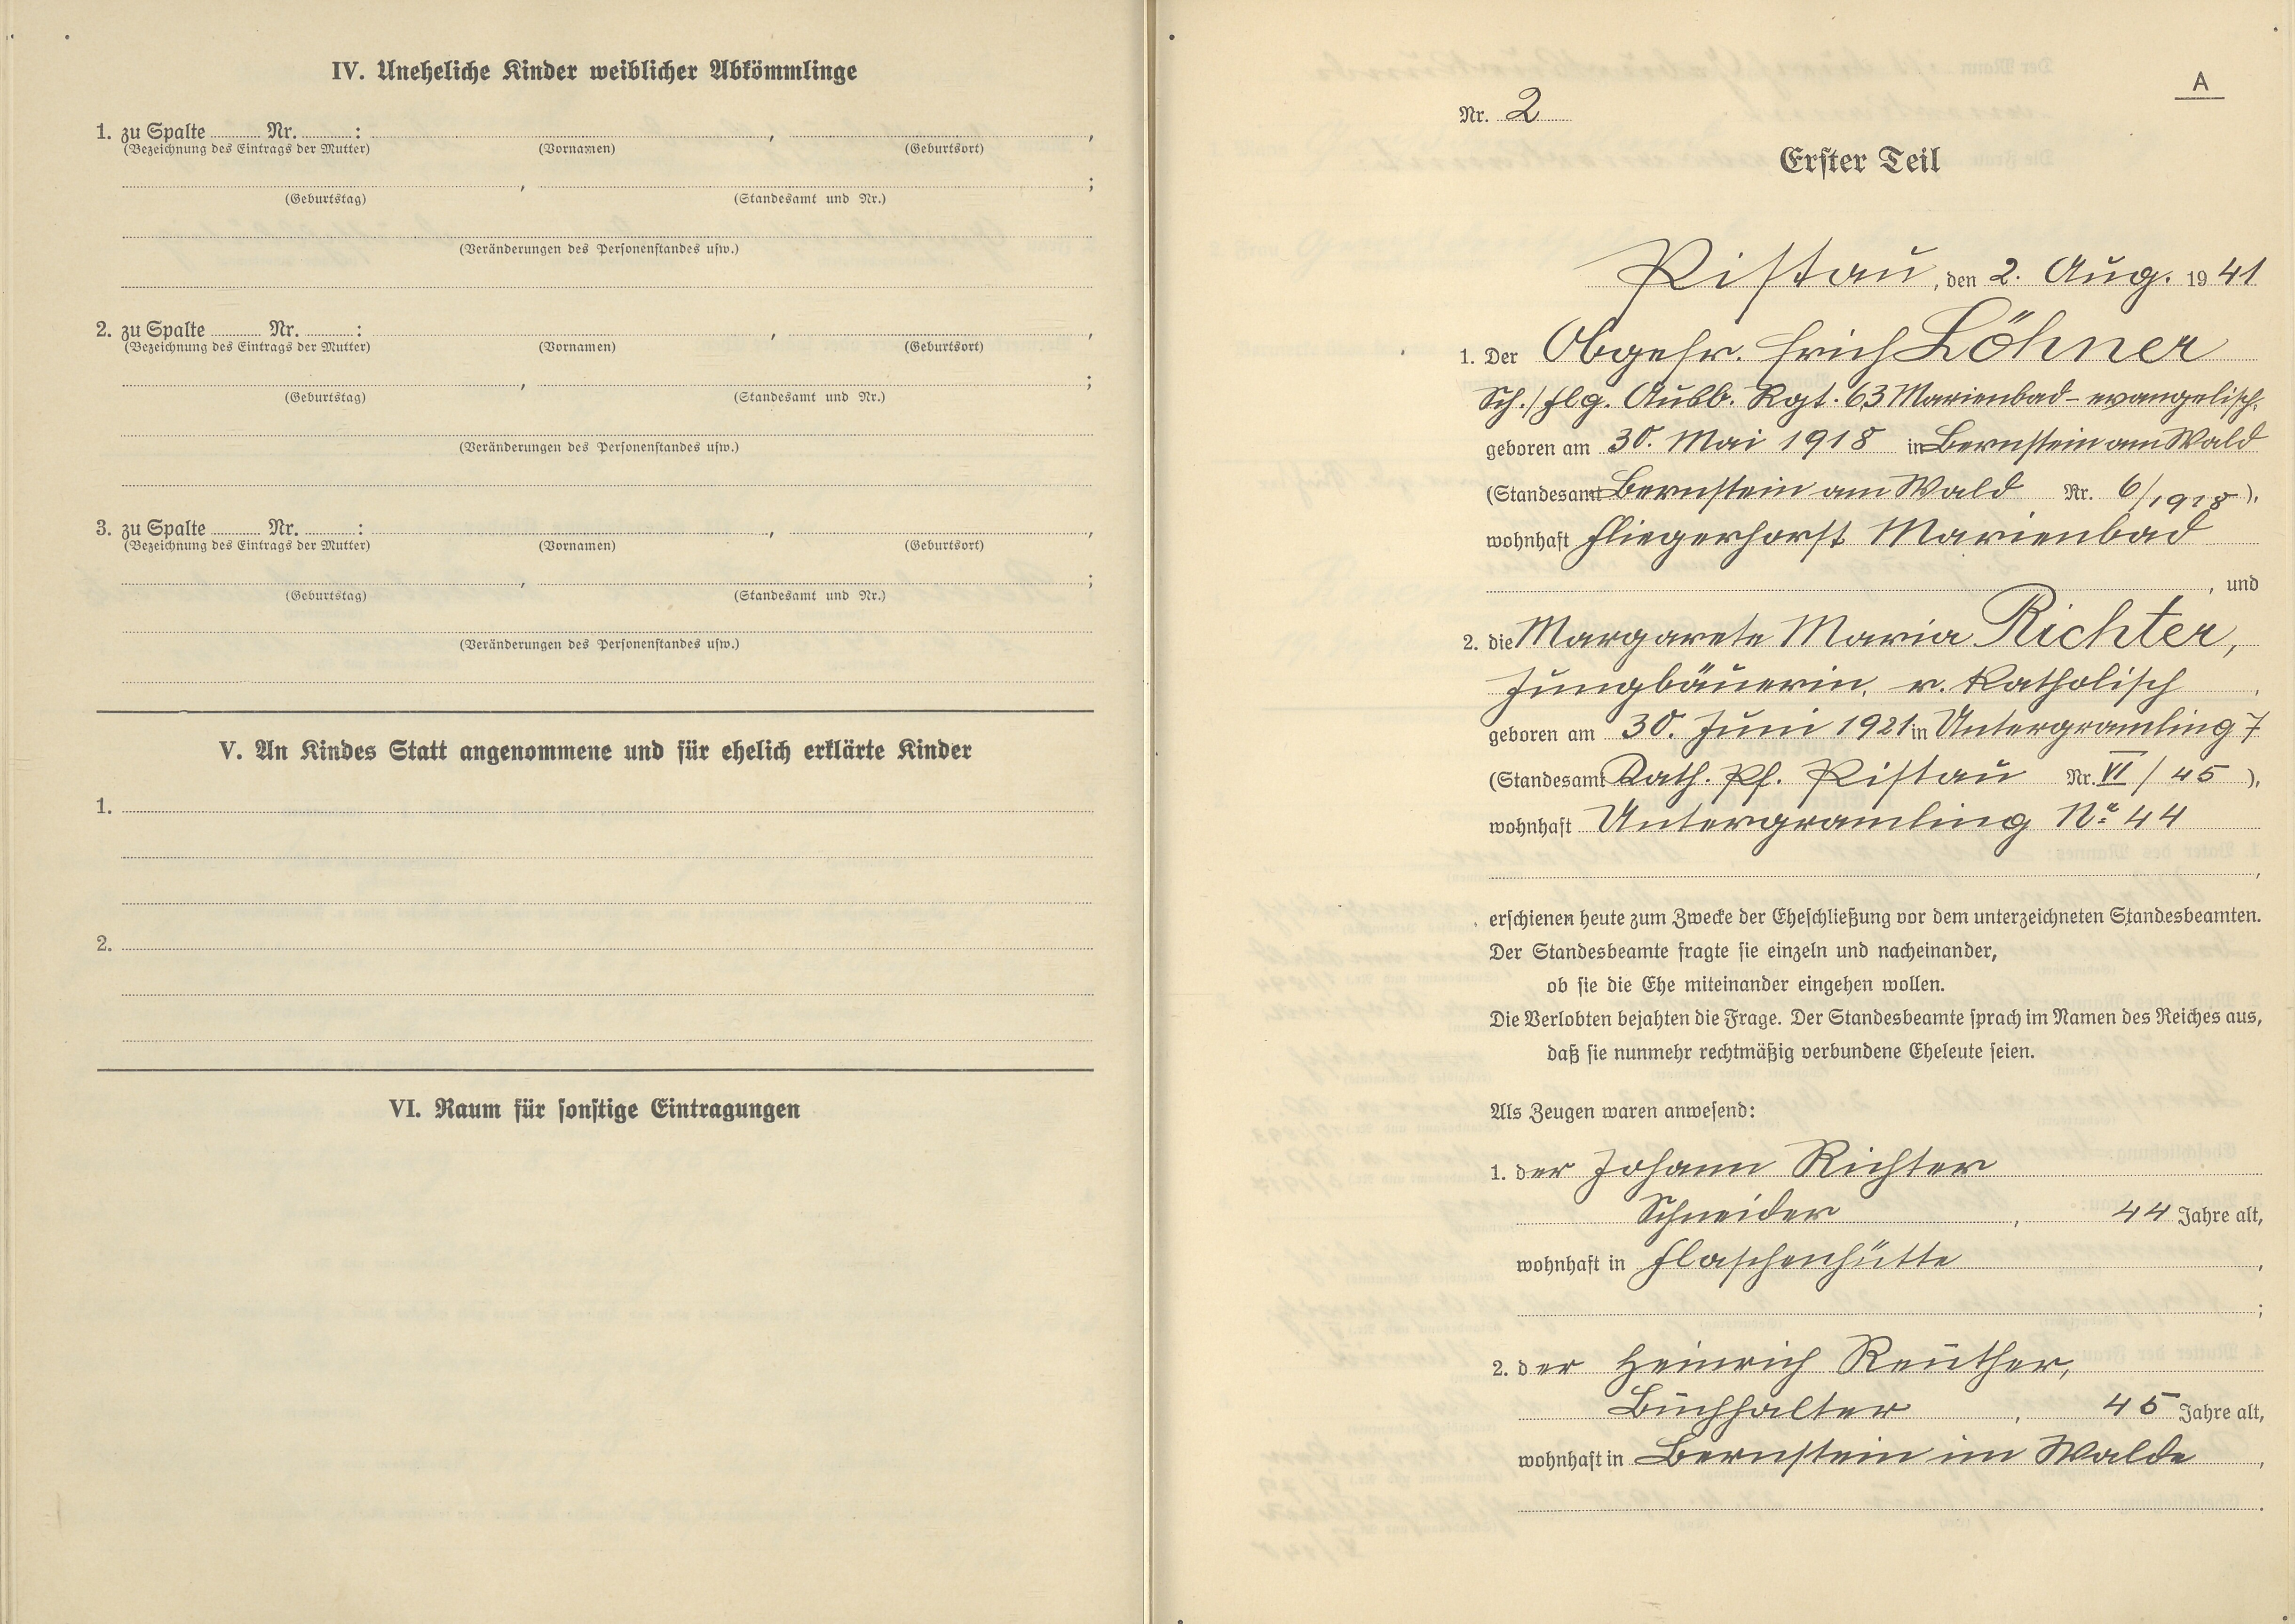 IV. Uneheliche Kinder weiblicher Abkömmlinge
1. zu Spalte ........ Nr. ........ : , ,
(Bezeichnung des Eintrags der Mutter) (Vornamen) (Geburtsort)
, ;
(Geburtstag) (Standesamt und Nr.)
(Veränderungen des Personenstandes usw.)
2. zu Spalte ........ Nr. ........ : , ,
(Bezeichnung des Eintrags der Mutter) (Vornamen) (Geburtsort)
, ;
(Geburtstag) (Standesamt und Nr.)
(Veränderungen des Personenstandes usw.)
3. zu Spalte ........ Nr. ........ : , ,
(Bezeichnung des Eintrags der Mutter) (Vornamen) (Geburtsort)
, ;
(Geburtstag) (Standesamt und Nr.)
(Veränderungen des Personenstandes usw.)
V. An Kindes Statt angenommene und für ehelich erklärte Kinder
1.
2.
VI. Raum für sonstige Eintragungen
A
Nr. 2
Erster Teil
Pistau, den 2. Aug. 1941
1. Der Obgefr. Erich Löhner
Sch./Flg. Ausb. Rgt. 63 Marienbad - evangelisch,
geboren am 30. Mai 1918 in Bernstein am Wald
(Standesamt Bernstein am Wald Nr. 6/1918),
wohnhaft Fliegerhorst Marienbad
, und
2. die Margarete Maria Richter,
Jungbäuerin, r. katholisch ,
geboren am 30. Juni 1921 in Untergramling 7
(Standesamt Kath. Pf. Pistau Nr. VI / 45 ),
wohnhaft Untergramling No. 44
,
erschienen heute zum Zwecke der Eheschließung vor dem unterzeichneten Standesbeamten.
Der Standesbeamte fragte sie einzeln und nacheinander,
ob sie die Ehe miteinander eingehen wollen.
Die Verlobten bejahten die Frage. Der Standesbeamte sprach im Namen des Reiches aus,
daß sie nunmehr rechtmäßig verbundene Eheleute seien.
Als Zeugen waren anwesend:
1. der Johann Richter
Schneider , 44 Jahre alt,
wohnhaft in Flaschenhütte ,
;
2. der Heinrich Reuther,
Buchhalter , 45 Jahre alt,
wohnhaft in Bernstein im Walde ,
.